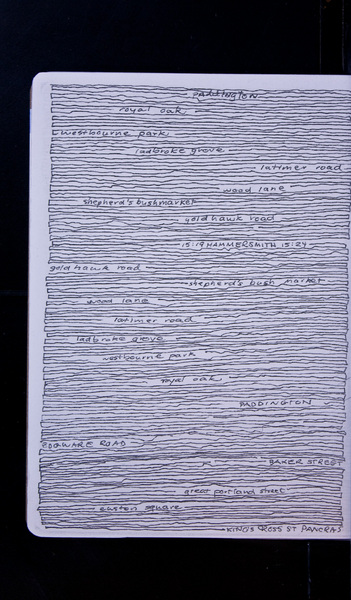 PADDINGTON
royal oak
westbourne park
ladbroke grove
latimer road
wood lane
shepherd's bushmarket
goldhawk road
15:19 HAMMERSMITH 15:24
goldhawk road
shepherd's bush market
wood lane
latimer road
ladbroke grove
westbourne park
royal oak
PADDINGTON
EDGWARE ROAD
BAKER STREET
great portland street
euston square
KING'S CROSS ST PANCRAS